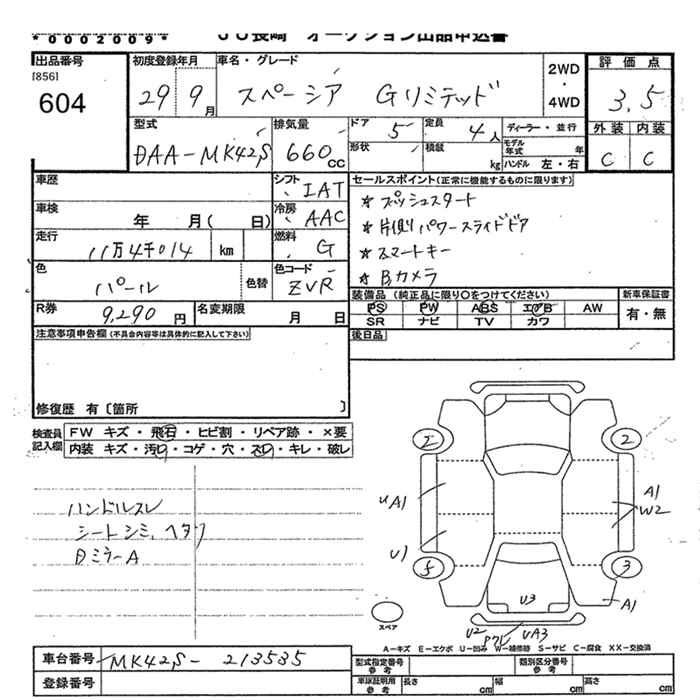 *0002009*
ＪＵ長崎 オークション出品申込書
出品番号 初度登録年月 車名・グレード 評価点
[856] 604
29年9月 スペーシア Gリミテッド 2WD・4WD 3.5
型式 排気量 ドア 5 定員 4人 ディーラー・並行 外装 内装
DAA-MK42S 660cc 形状 積載 kg モデル年式 年 ハンドル 左・右 C C
車歴 シフト IAT セールスポイント(正常に機能するものに限ります)
★プッシュスタート
車検 年 月( 日) 冷房 AAC ★片側パワースライドドア
走行 11万4千014 km 燃料 G ★スマートキー
色 パール 色替 色コード ZVR ★Bカメラ
R券 9,290円 名変期限 月 日
装備品(純正品に限り○をつけてください) 新車保証書
PS PW ABS エアB AW 有・無
SR ナビ TV カワ
注意事項申告欄(不具合内容等は具体的に記入して下さい) 後日品
修復歴 有〔箇所 〕
検査員記入欄 FW キズ・飛石・ヒビ割・リペア跡・×要
内装 キズ・汚レ・コゲ・穴・スレ・キレ・破レ
ハンドルスレ
シートシミ、ヘタリ
DミラーA
2
UA1
A1
W2
U1
5
3
U3
A1
U2
UA3
スペア
A−キズ E−エクボ U−凹み W−補修跡 S−サビ C−腐食 XX−交換済
車台番号 MK42S-213535 型式指定番号 参考 類別区分番号 参考
登録番号 車庫証明用 参考 長さ cm 幅 cm 高さ cm